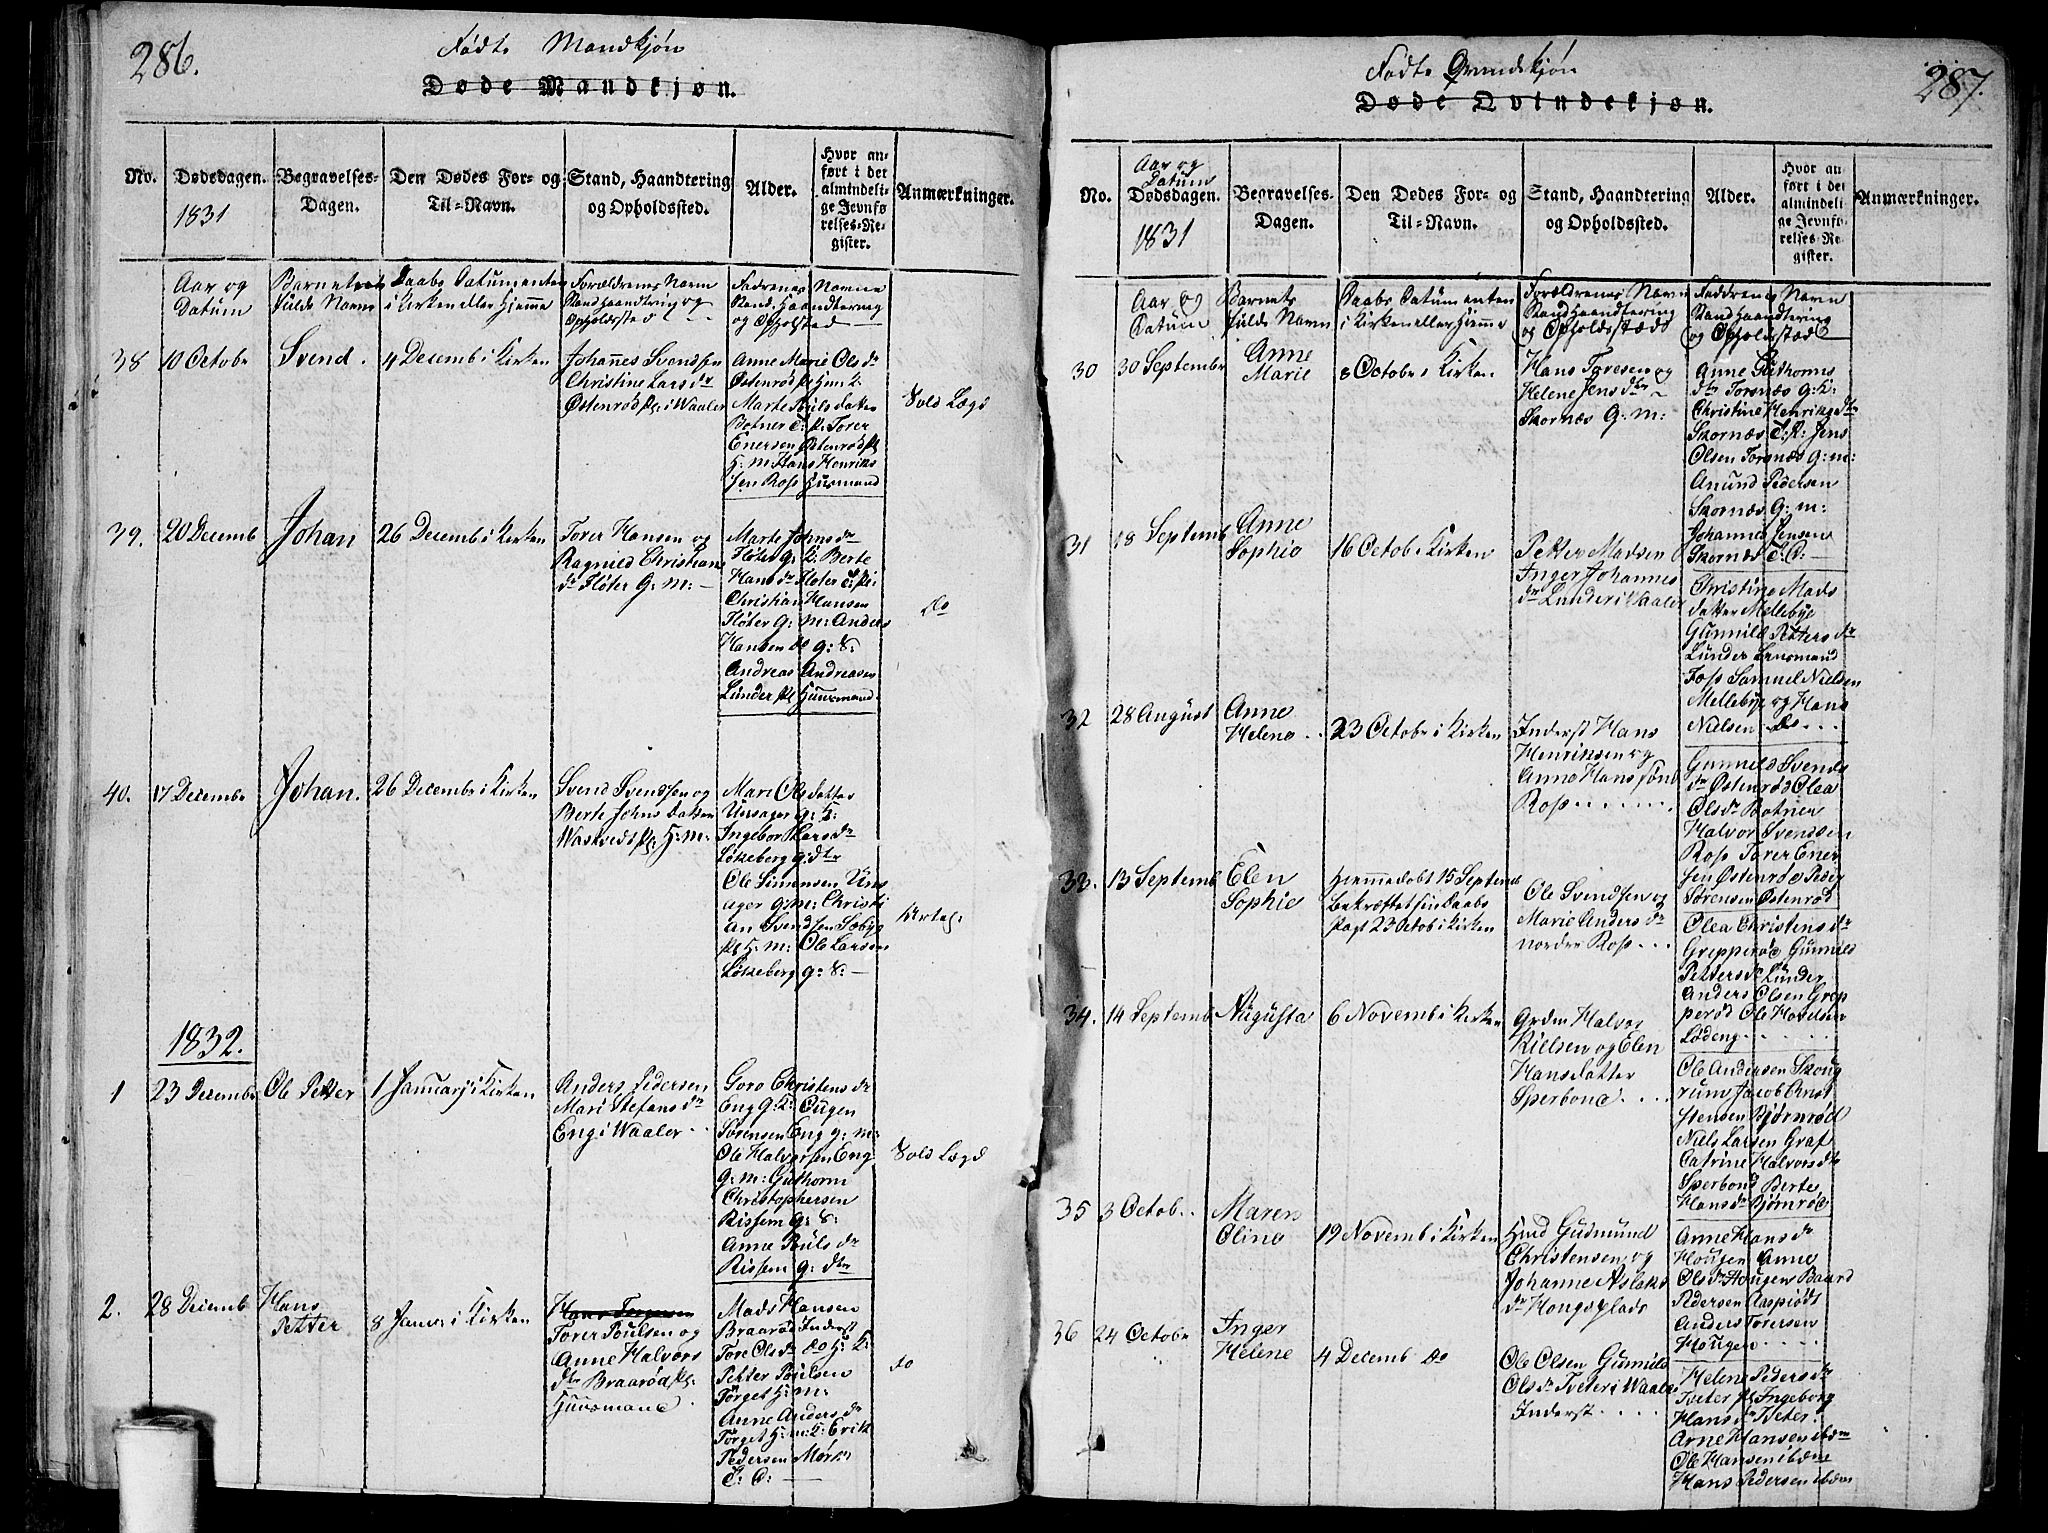 286.
Fødte Mandkjøn
Døde Mandkjøn.
No.
Dødedagen.
1831
Begravelses-
Dagen.
Den Dødes For- og
Til-Navn.
Stand, Haandtering
og Opholdssted.
Alder.
Hvor an-
ført i det
almindeli-
ge Jevnfø-
relses-Re-
gister.
Anmærkninger.
Aar og
Datum
Barnets
fulde Navn
Daabs Datum enten
i Kirken eller Hjemme
Forældrenes Navn
Stand Haandtring og
Opholdssted
Fadrenes Navne
Stand, Haandtering
og Opholsted
38
10 Octobr
Svend.
4 Decemb i Kirken
Johannes Svendsen
Christine Larsdr
Østenrød pl: i Waaler
Anne Marie Olsdr
Østenrød pl H:m K:
Marte Pouls datter
Botner T: p: Torer
Enersen Østenrød pl
H: m: Hans Henrik
sen Ross Huusmand
Vold Lægd
39.
20 Decemb
Johan
26 Decemb i Kirken
Torer Hansen og
Ragnild Christians
dr Fløter G: M:
Marte Johnsdr
Fløter G: K: Berte
Hansdr Fløter T: pi:
Christian Hansen
Fløter G: m: Anders
Hansen do g: S:
Andreas Andreasen
Lunder pl Huusmand
do
40.
17 Decembr
Johan.
26 Decembr i Kirken
Svend Svendsen og
Berte Johns Datter
Waskvedt pl: H: M:
Mari Olsdatter
Unsager g: K:
Ingebor Larsdr
Løkeberg g: dtr
Ole Simensen Uns
ager g: m: Christi
an Svendsen Sæby
pl H: m: Ole Larsen
Løkeberg g: S:
1832.
1
23 Decembr
Ole Petter
1 Januarj i Kirken
Anders Pedersen
Mari Stefansdr
Eng i Waaler
Goro Christensdr
Eng G: K: Ougen
Sørensen Eng g: m:
Ole Halvorsen Eng
G: m: Guthorm
Christophersen
Rissem g: S:
Anne Pouls dr
Rissem g: dtr
Vold Lægd
2.
28 Decemb
Hans
Petter
8 Janv: i Kirken
Torer Poulsen og
Anne Halvors
dtr Braarød pl:
Huusmand.
Mads Hansen
Braarød Inderst
Tore Olsdr do H: K:
Petter Poulsen
Torget H: m:
Anne Andersdr
Torget H: m: K: Erik
Pedersen Mørk
T: D:
do
287.
Fødte Qvindekjøn
Døde Qvindekjøn.
No.
Aar og
Datum
Dødsdagen.
1831
Begravelses-
Dagen.
Den Dødes For- og
Til-Navn.
Stand, Haandtering
og Opholdssted.
Alder.
Hvor an
ført i det
almindeli
ge Jevnfø-
relses-Re
gister.
Anmærkninger.
Aar og
Datum
Barnets
fulde Navn
Daabs Datum enten
i Kirken eller Hjemme
Forældrenes Navn
Stand Haandtering
og Opholdsstæd
Faddrenes Navn
Stand Haandtering
og Opholdsstæd
30
30 Septembr
Anne
Marie
8 Octobr i Kirken.
Hans Toresen og
Helene Jens dtr
Skornæs G: M:
Anne Guthorms
dtr Torsnæs G: K:
Christine Henriksdtr
Skornæs T: P: Jens
Olsen Torsnæs G: m:
Anund Pedersen
Skornæs G: m:
Johannes Jensen
Skornæs T: D:
31
18 Septemb
Anne
Sophie
16 Octobr Kirken
Petter Madsen
Inger Johannes
dr Lunder i Waaler
Christine Mads
datter Mellebye
Gunnild Pettersdr
Lunder Lensmand
Foss Samuel Nielsen
Mellebye og Hans
Nielsen do
32
28 August
Anne
Helene
23 Octobr i Kirken
Inderst Hans
Henriksen og
Anne Hans
Ross
Gunnild Svends
dr Østenrød Olea
Olsdr Botner
Halvor Svendsen
Ross Torer Ener
sen Østenrød Peder
Sørensen Østenrød
33.
13 Septemb
Elen
Sophie
Hjemmedøbt 15 Septemb
Bekræftet sin Daabs
Pagt 23 Octob i Kirken
Ole Svendsen og
Marie Andersdr
nordre Ross
Olea Christensdr
Gripperød Gunnild
Pettersdr Lunder
Anders Olsen Grep
perød Ole Hovelsen
Lødeng
34.
14 Septemb
Augusta
6 Novemb i Kirken
Halvor
Killsen og Elen
Hansdatter
Sperbond
Ole Andersen Skoug
rum Jacob Arnst
stensen Bjørnrød
Niels Larsen Graf
Catrine Halvorsdtr
Sperbond Berte
Hansdr Bjørnrød
35
3 Octob
Maren
Oline
19 Novemb i Kirken
Gudmund
Christensen og
Johanne Aslaks
dr Hougsplads
Anne Hansdr
Hougen Anne
Olsdr Hougen Baard
Pedersen
Anders Toresen
Hougen
36
24 Octobr
Inger
Helene
4 Decemb do
Ole Olsen Gunnild
Olsdr Tveter i Waaler
Inderst
Helene Pedersdr
Tveter pl Ingeborg
Hansdr Tveter
Arne Hansen ibdm
Ole Hansen ibdm
Hans Pedersen ibdm